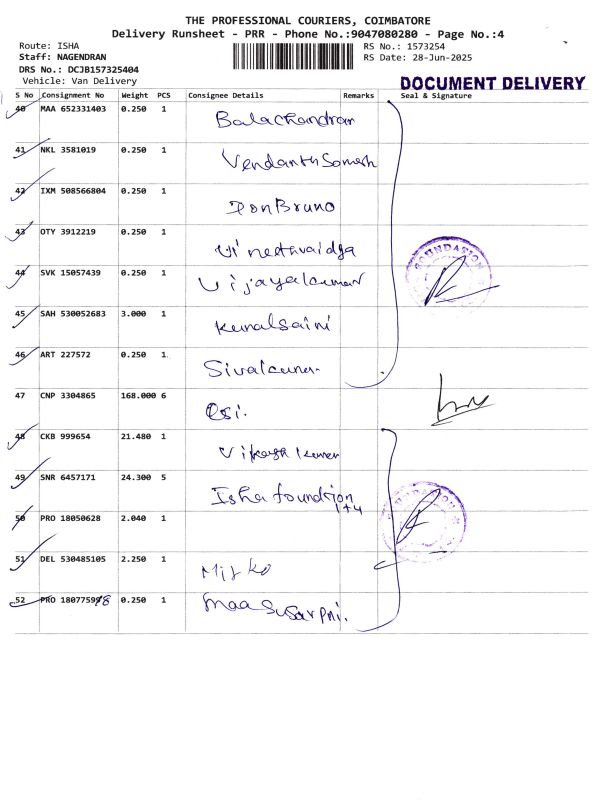 THE PROFESSIONAL COURIERS, COIMBATORE
Delivery Runsheet - PRR - Phone No.:9047080280 - Page No.:4
Route: ISHA
RS No.: 1573254
Staff: NAGENDRAN
RS Date: 28-Jun-2025
DRS No.: DCJB157325404
Vehicle: Van Delivery
DOCUMENT DELIVERY
S No Consignment No Weight PCS Consignee Details Remarks Seal & Signature
40 MAA 652331403 0.250 1 Balachandran
41 NKL 3581019 0.250 1 Vendanth Somesh
42 IXM 508566804 0.250 1 Don Bruno
43 OTY 3912219 0.250 1 Vineethvaidya
44 SVK 15057439 0.250 1 Vijayakumar
FOUNDATION
45 SAH 530052683 3.000 1 Kunalsaini
46 ART 227572 0.250 1
47 CNP 3304865 168.000 6
48 CKB 999654 21.480 1
49 SNR 6457171 24.300 5 Isha foundtion
1+4
50 PRO 18050628 2.040 1
51 DEL 530485105 2.250 1
52 PRO 1807759 0.250 1 maa